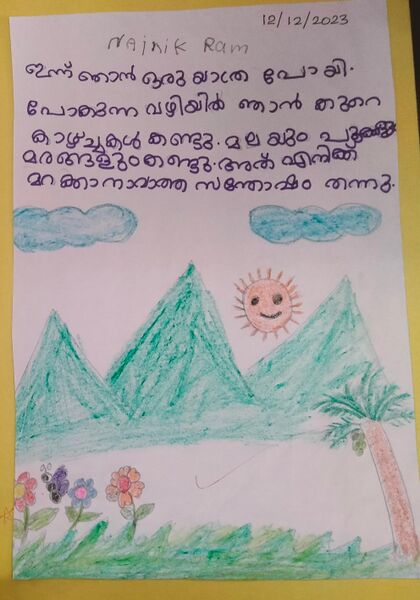 12/12/2023
Najnik Ram
ഇന്ന് ഞാൻ ഒരു യാത്ര പോയി.
പോകുന്ന വഴിയിൽ ഞാൻ കുറെ
കാഴ്ച്ചകൾ കണ്ടു. മലയും
മരങ്ങളും കണ്ടു. അത് എനിക്ക്
മറക്കാനാവാത്ത സന്തോഷം തന്നു.